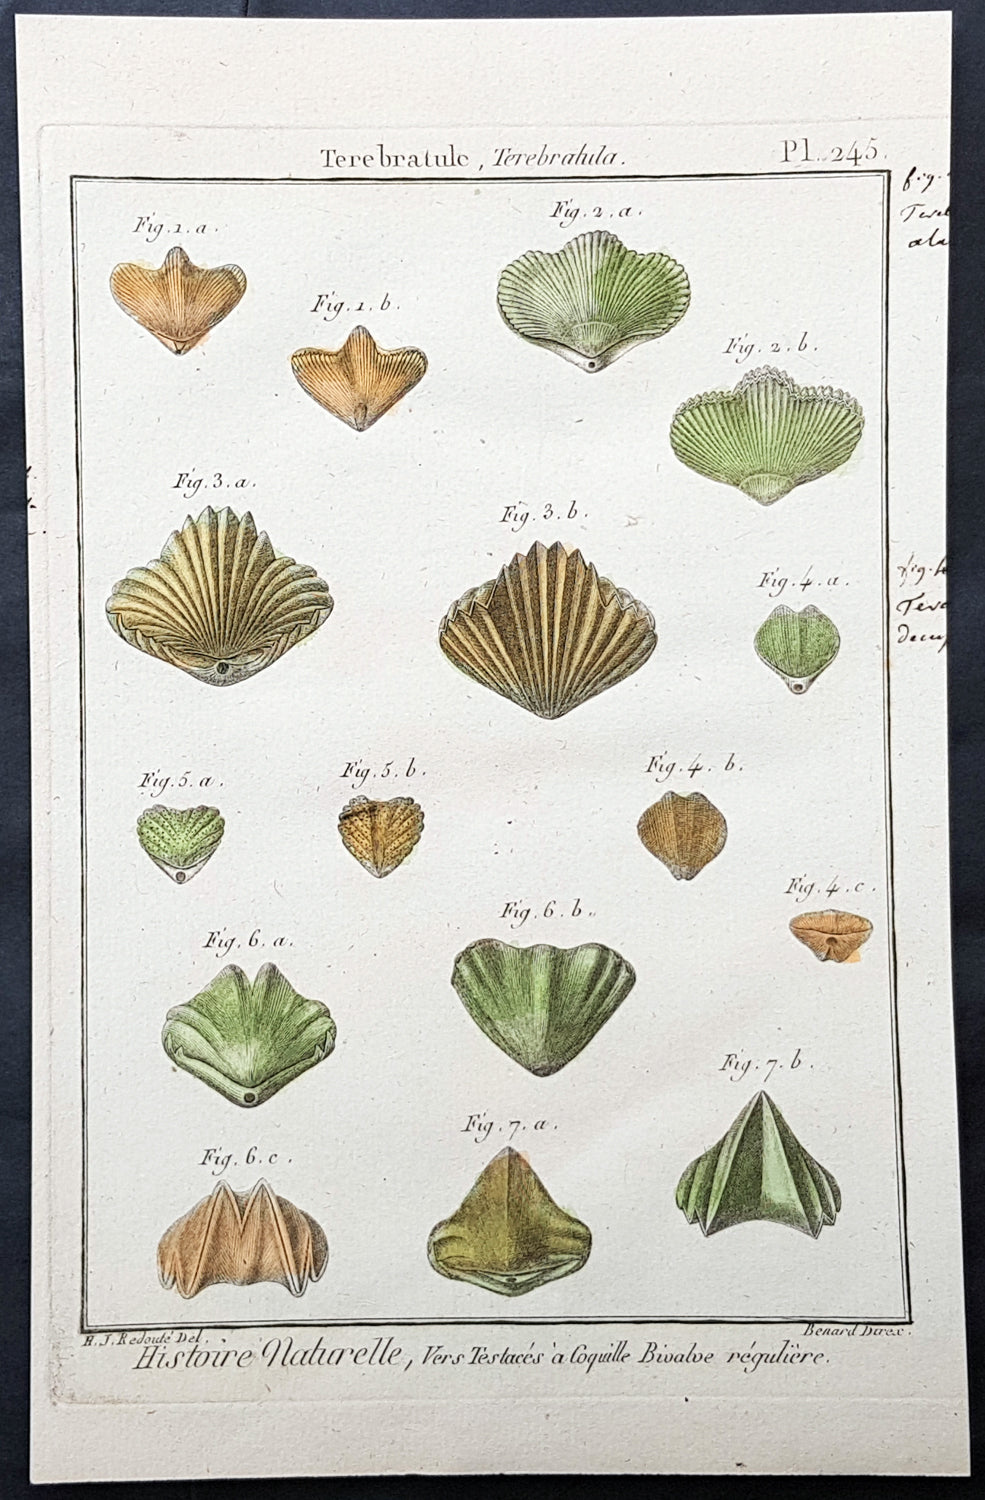 Terebratule, Terebratula.
Pl. 245.
fig.
Fig. 1. a.
Fig. 2. a.
Fig. 1. b.
Fig. 2. b.
Fig. 3. a.
Fig. 3. b.
Fig. 4. a.
Fig. 5. a.
Fig. 5. b.
Fig. 4. b.
Fig. 4. c.
Fig. 6. a.
Fig. 6. b.
Fig. 7. b.
Fig. 6. c.
Fig. 7. a.
H. J. Redouté Del.
Benard Direx.
Histoire Naturelle, Vers Testacés à Coquille Bivalve régulière.